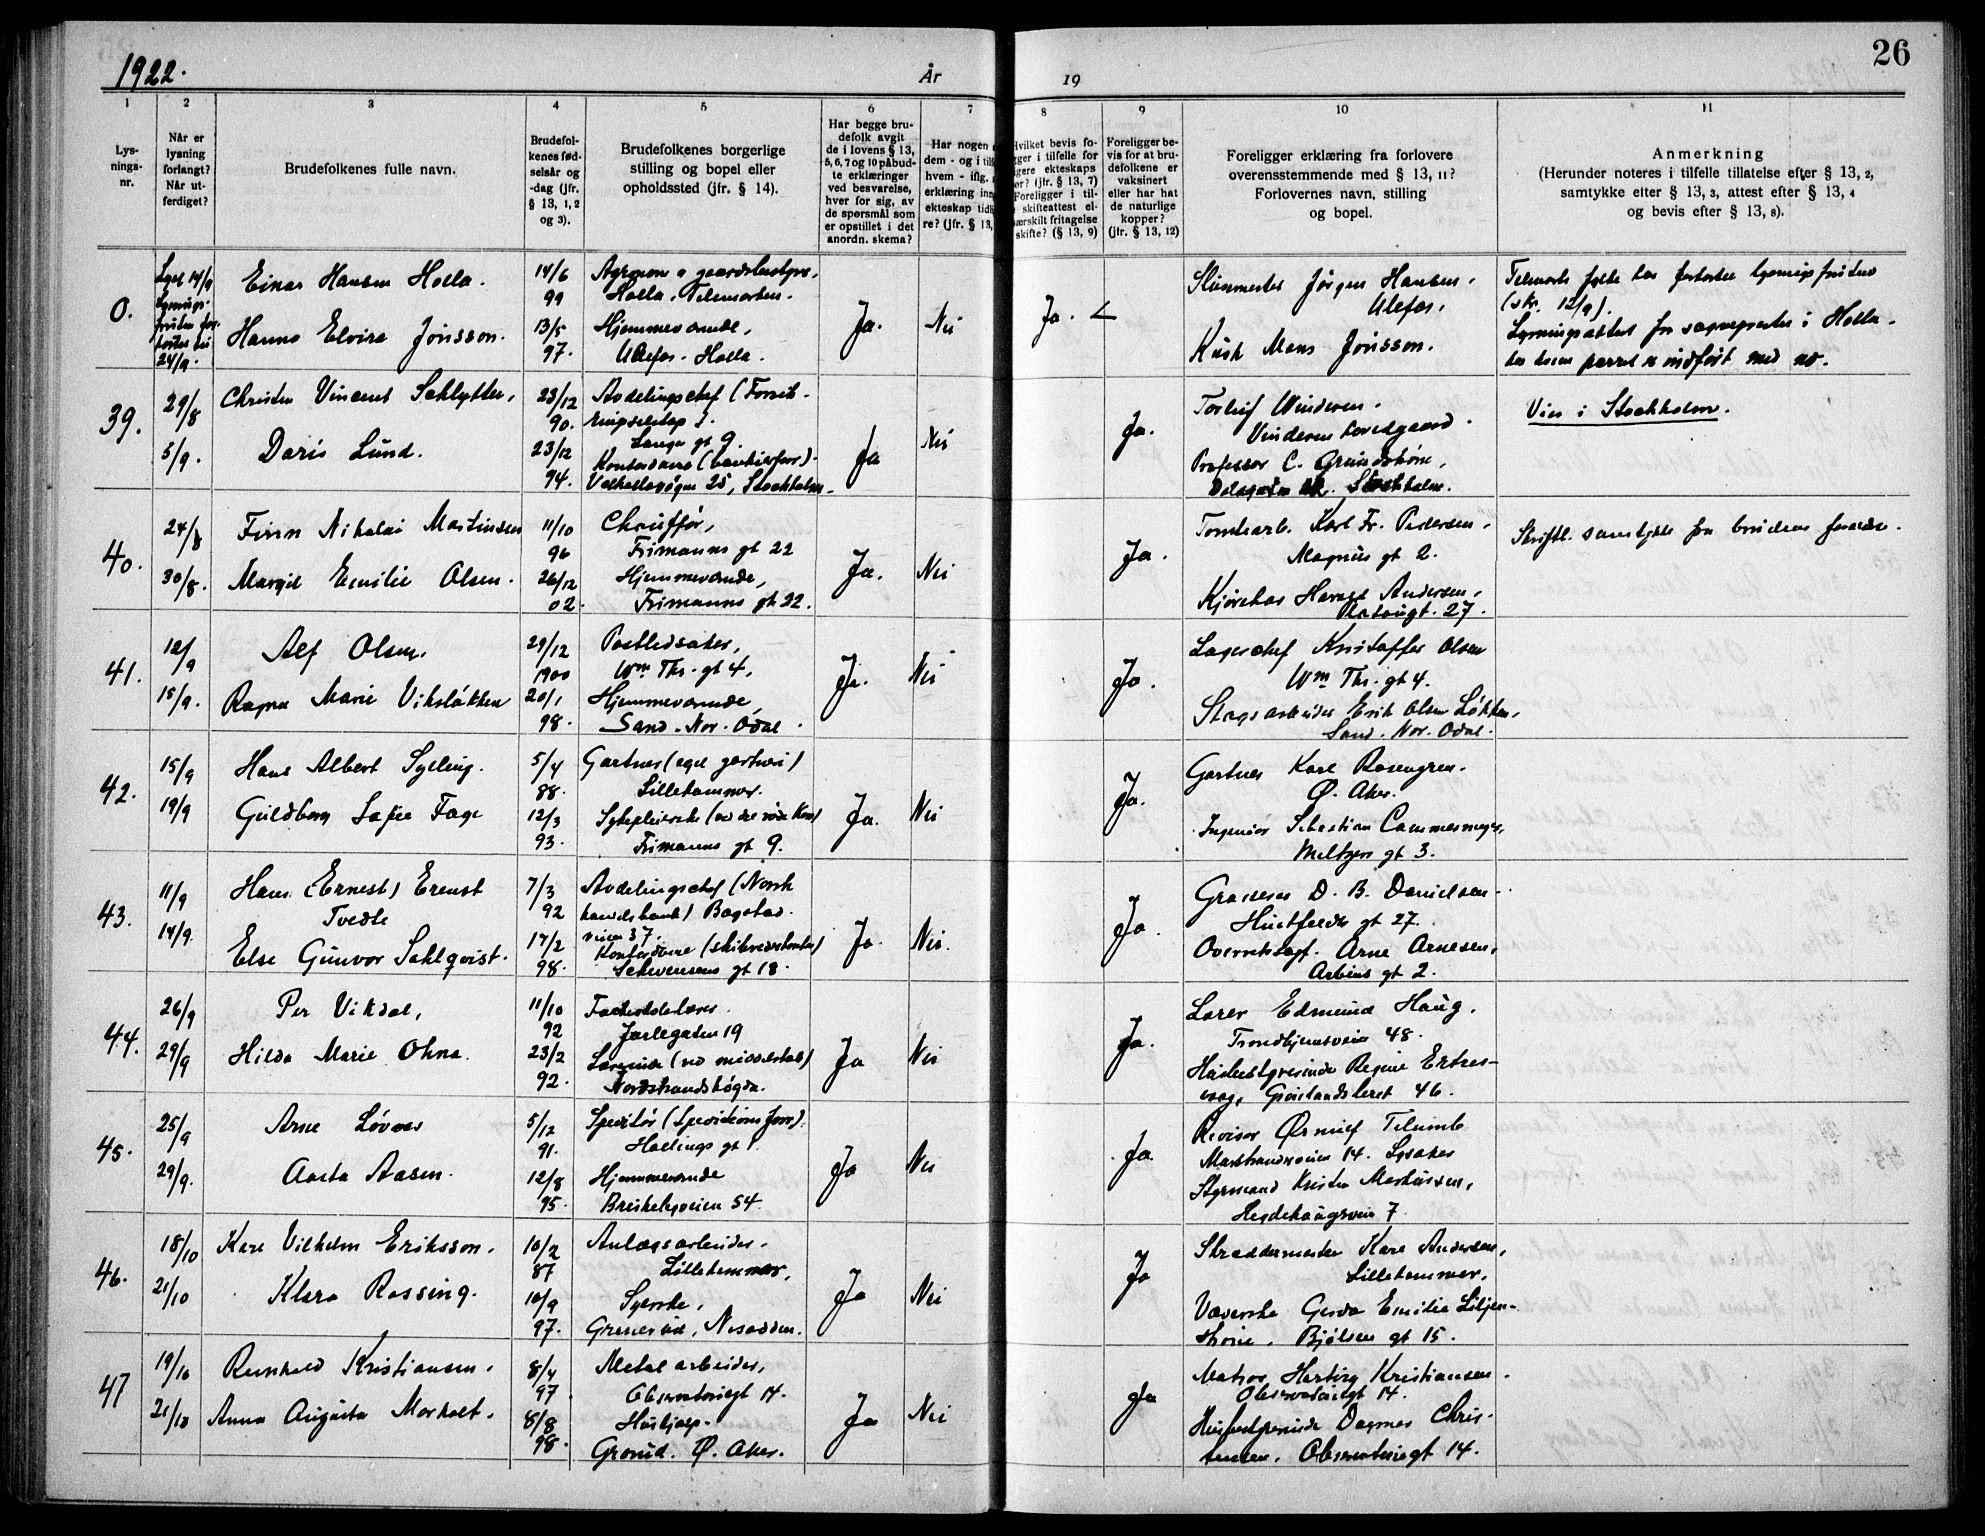 26
1922.
År
19
1
2
3
4
5
6
7
8
9
10
11
Lys-
nings-
nr.
Når er
lysning
forlangt?
Når ut-
ferdiget?
Brudefolkenes fulle navn.
Brudefol-
kenes fød-
selsår og
-dag (jfr.
§ 13, 1, 2
og 3).
Brudefolkenes borgerlige
stilling og bopel eller
opholdssted (jfr. § 14).
Har begge bru-
defolk avgit
de i lovens § 13,
5, 6, 7 og 10 påbud-
te erklæringer
ved besvarelse,
hver for sig, av
de spørsmål som
er opstillet i det
anordn. skema?
Har nogen
dem - og i
hvem - iflg.
erklæring inn
ekteskap tid
re? (jfr. § 13,
Hvilket bevis fo-
ger i tilfelle for
gere ekteskaps
ør? (jfr. § 13, 7)
Foreligger i til-
skifteattest el-
særskilt fritagelse
skifte? (§ 13, 9)
Foreligger be-
vis for at bru-
defolkene er
vaksinert
eller har hat
de naturlige
kopper?
(jfr. § 13, 12)
Foreligger erklæring fra forlovere
overensstemmende med § 13, 11?
Forlovernes navn, stilling
og bopel.
Anmerkning
(Herunder noteres i tilfelle tillatelse efter § 13, 2,
samtykke etter § 13, 3, attest efter § 13, 4
og bevis efter § 13, 8).
0.
24/9.
Einar Hansen Holla.
Hanna Elvira Jonsson.
14/6
99
13/5
97.
Agronom
Holla, Telemarken.
Hjemmeværende,
Ulefos. Holla.
Ja.
Nei
Ja.
Jørgen Hansen,
Ulefos,
Mons Jonsson.
(skr. 12/9).
39.
29/8
5/9.
Christen Vincent Schlytter,
Doris Lund.
23/12
90.
23/12
94.
Avdelingschef (Forsik-
ringselskap).
Langes gt 9.
Valhallavägen 25, Stockholm
Ja
Nei
Ja.
Torleif Winderen.
Vinderen hovedgaard.
Professor C.
Stockholm.
Vies i Stockholm.
40.
24/8
30/8.
Finn Nikolai Martinsen
Margit Emilie Olsen.
11/10
96
26/12
02.
Chauffør,
Frimanns gt 22
Hjemmeværende,
Frimanns gt 22.
Ja.
Nei
Ja.
Tomtearb. Karl Fr. Pedersen,
Magnus gt 2.
Harald Andersen,
27.
Skriftl. samtykke fra brudens foreldre.
41.
12/9
15/9.
Alf Olsen.
Ragna Marie Viksløkken
29/12
1900
20/1
98.
Postledsager,
Wm Thr. gt 4.
Hjemmeværende,
Sand. Nor. Odal.
Ja.
Nei
Ja.
Lagerchef Kristoffer Olsen
Wm Thr. gt 4.
Erik Olsen Løkken,
Sand. Nor. Odal.
42.
15/9
19/9
Hans Albert Sylling.
Guldborg Sofie Fage
5/4
88.
12/3
93.
Gartner (eget gartneri)
Lillehammer.
Sykepleierske (ved det røde Kors)
Frimanns gt 9.
Ja.
Nei
Ja.
Gartner Karl Rosengren.
Ø. Aker.
Ingeniør Sebastian Cammermeyer,
Meltzers gt 3.
43.
11/9
14/9.
Hans (Ernest) Ernst
Tvedte
Else Gunvor Sahlqvist.
7/3
92
17/2
98.
Avdelingschef (Norsk
handelsbank) Bogstad-
veien 37.
Kontordame (skibsrederkontor)
Schwensens gt 18.
Ja.
Nei.
Ja.
Grosserer D. B. Danielsen.
Huitfeldts gt 27.
Overrettssagf. Arne Arnesen,
Arbins gt 2.
44.
26/9
29/9
Per Vikdal,
Hilda Marie Ohna.
11/10
92
23/2
92.
Fachskolelærer.
Jarlegaten 19
Lærerinde (ved middelskole)
Nordstrandshøgda.
Ja
Nei
Ja.
Lærer Edmund Haug.
Trondhjemsveien 48.
Husbestyrerinde Regine Ertres-
vaag, Grønlandsleret 46.
45.
25/9
29/9.
Arne Løvaas
Aasta Aasen.
5/12
91.
12/8
95.
Speditør (speditionsforr.)
Hallings gt 1.
Hjemmeværende
Breiskelyveien 54.
Ja
Nei
Ja.
Revisor Ørnulf
14. Lysaker
Styrmand Kristen Martinsen,
Hegdehaugsveien 7
46.
18/10
21/10
Karl Vilhelm Eriksson.
Klara Rossing.
10/2
87
10/9
97.
Anlægsarbeider.
Lillehammer,
Syerske,
Nesodden.
Ja
Nei
Ja
Skræddermester Kare Andersen,
Lillehammer,
Væverske Gerda Emilie Liljen-
Bjølsen gt 15.
47
19/10
21/10
Reinhold Kristiansen.
Anna Augusta Morholt.
8/4
97
8/8
98.
Metalarbeider,
Observatoriegt 14.
Hushjælp.
Grorud. Ø. Aker.
Ja
Nei
Ja
Matros Hartvig Kristiansen.
Observatoriegt 14.
Husbestyrerinde Dagmar Chris-
tensen, Observatoriegt 14.